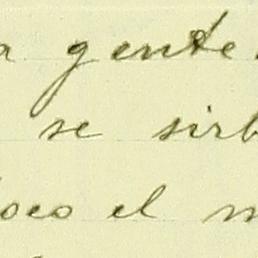 a gente
se sirb
oco el m